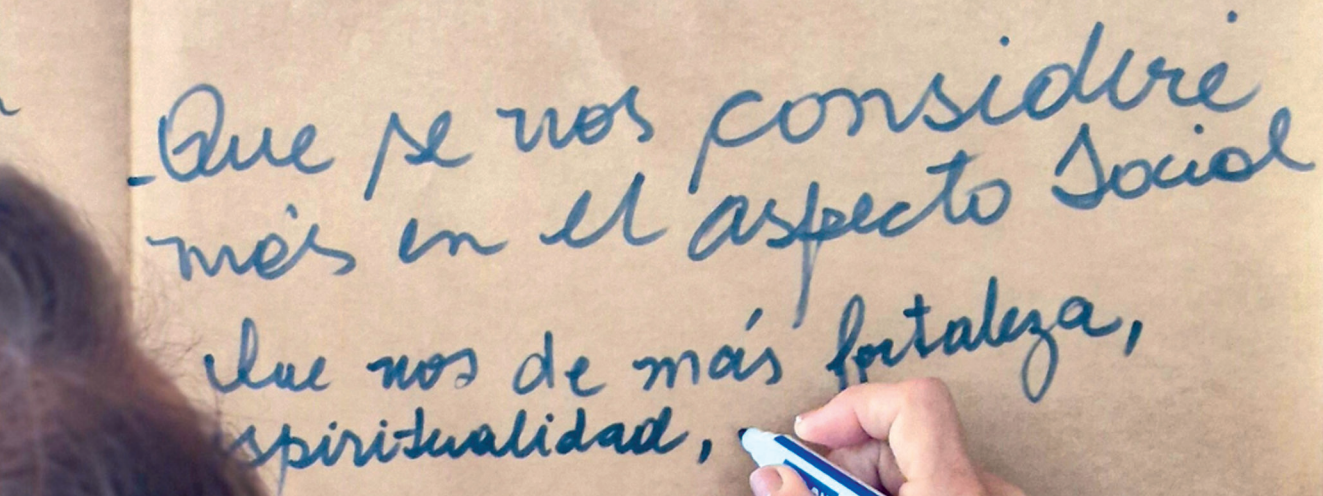 - Que se nos considere
más en el aspecto Social
Que nos de más fortaleza,
espiritualidad,